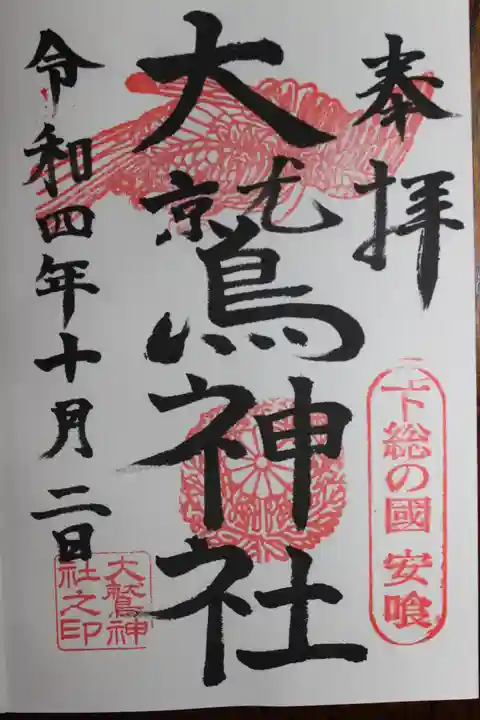 奉拝
下総の國 安喰
大鷲神社
大鷲神
社之印
令和四年十月二日